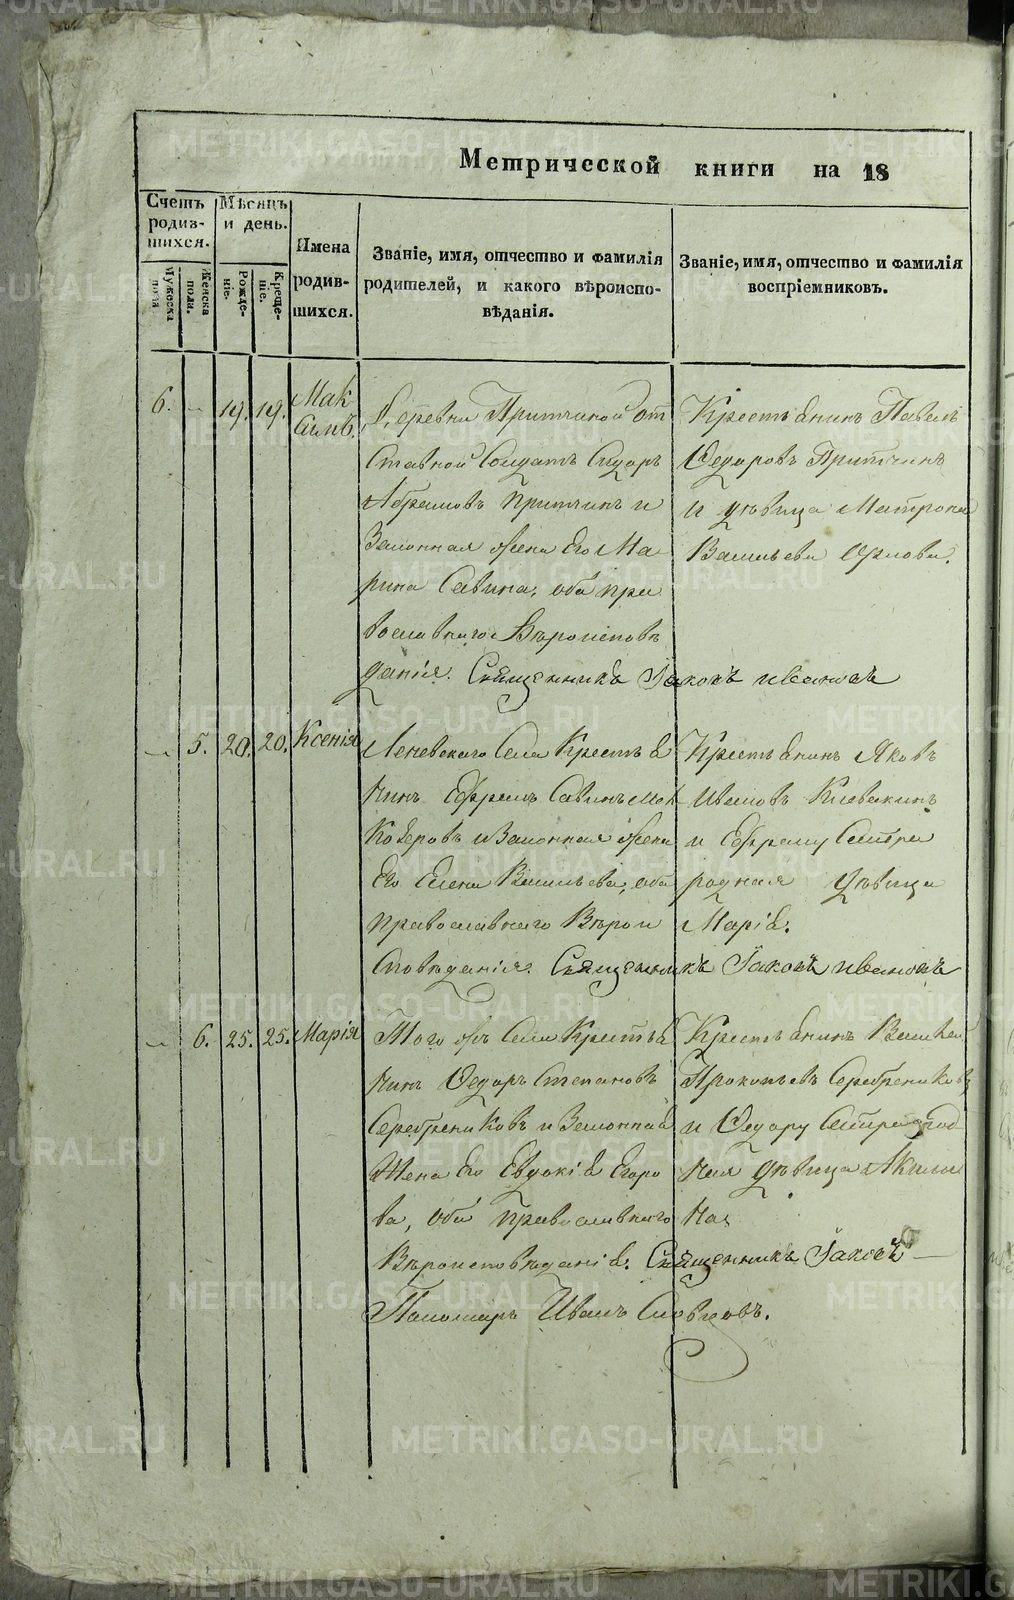 Метрической книги на 18
Счетъ родив-шихся.
Мужеска пола
Женска пола.
Мѣсяцъ и день.
Рожде-ніе.
Креще-ніе.
Имена родив-шихся.
Званіе, имя, отчество и фамилія
родителей, и какого вѣроиспо-
вѣданія.
Званіе, имя, отчество и фамилія
воспріемниковъ.
6. 19. 19. Мак
симъ.
Деревни Притчиной от
ставной Солдатъ Сидоръ
Абрамовъ Притчинъ и
Законная жена Его Ма
рина Савина, оба пра
вославнаго Вѣроисповѣ
данія. Священникъ Іаковъ Ивановъ
Крестьянинъ Павелъ
Ѳедоровъ Притчинъ
и дѣвица Матрона
Васильева
5. 20. 20. Ксенія
Леневскаго Села Крестья
нинъ Ефремъ Савинъ
и Законная жена
Его Елена Васильева, оба
православнаго Вѣрои
сповѣданія. Священникъ Іаковъ Ивановъ
Крестьянинъ Яковъ
Ивановъ
и Ефрему Сестра
родная дѣвица
Марія.
6. 25. 25. Марія
Того жъ Села Крестья
нинъ Ѳедоръ Степановъ
Серебрениковъ и Законная
Жена Его Евдокія Егоро
ва, оба православнаго
Вѣроисповѣданія. Священникъ Іаковъ
Пономарь Иванъ Словцовъ.
Крестьянинъ Василей
Прокопьевъ Серебрениковъ
и Ѳедору Сестра род
ная дѣвица Акили
на;
METRIKI.GASO-URAL.RU